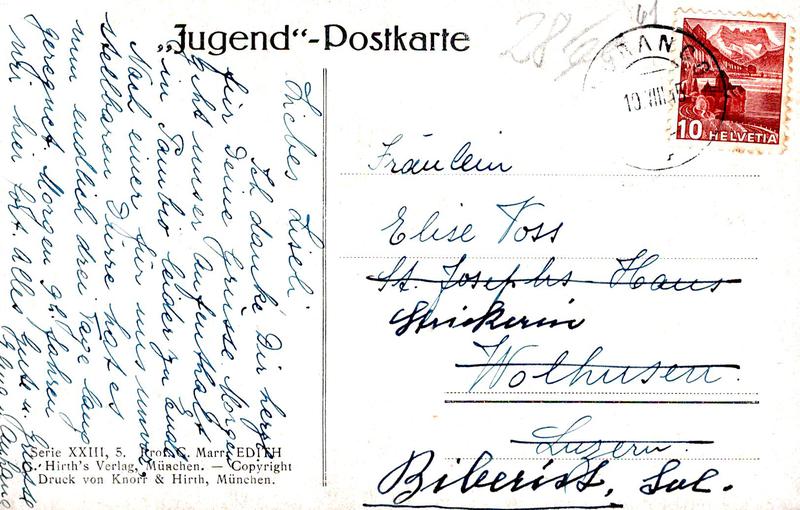 „Jugend“-Postkarte
Liebes Liseli
Ich danke Dir herzl.
für Deine Grüsse Morgen
geht unser Aufenthalt
in Pambio leider zu Ende
Nach einer für uns unvor-
stellbaren Dürre hat es
nun endlich drei Tage lang
geregnet Morgen
fahren
wir hier fort. Alles Gute u. Grüsse
Serie XXIII, 5. Prof. C. Marr, EDITH
G. Hirth's Verlag, München. — Copyright
Druck von Knorr & Hirth, München.
10 HELVETIA
10.VIII
Fräulein
Elise Voss
St. Josephs Haus
Strickerin
Wolhusen.
Luzern.
Biberist, Sol.